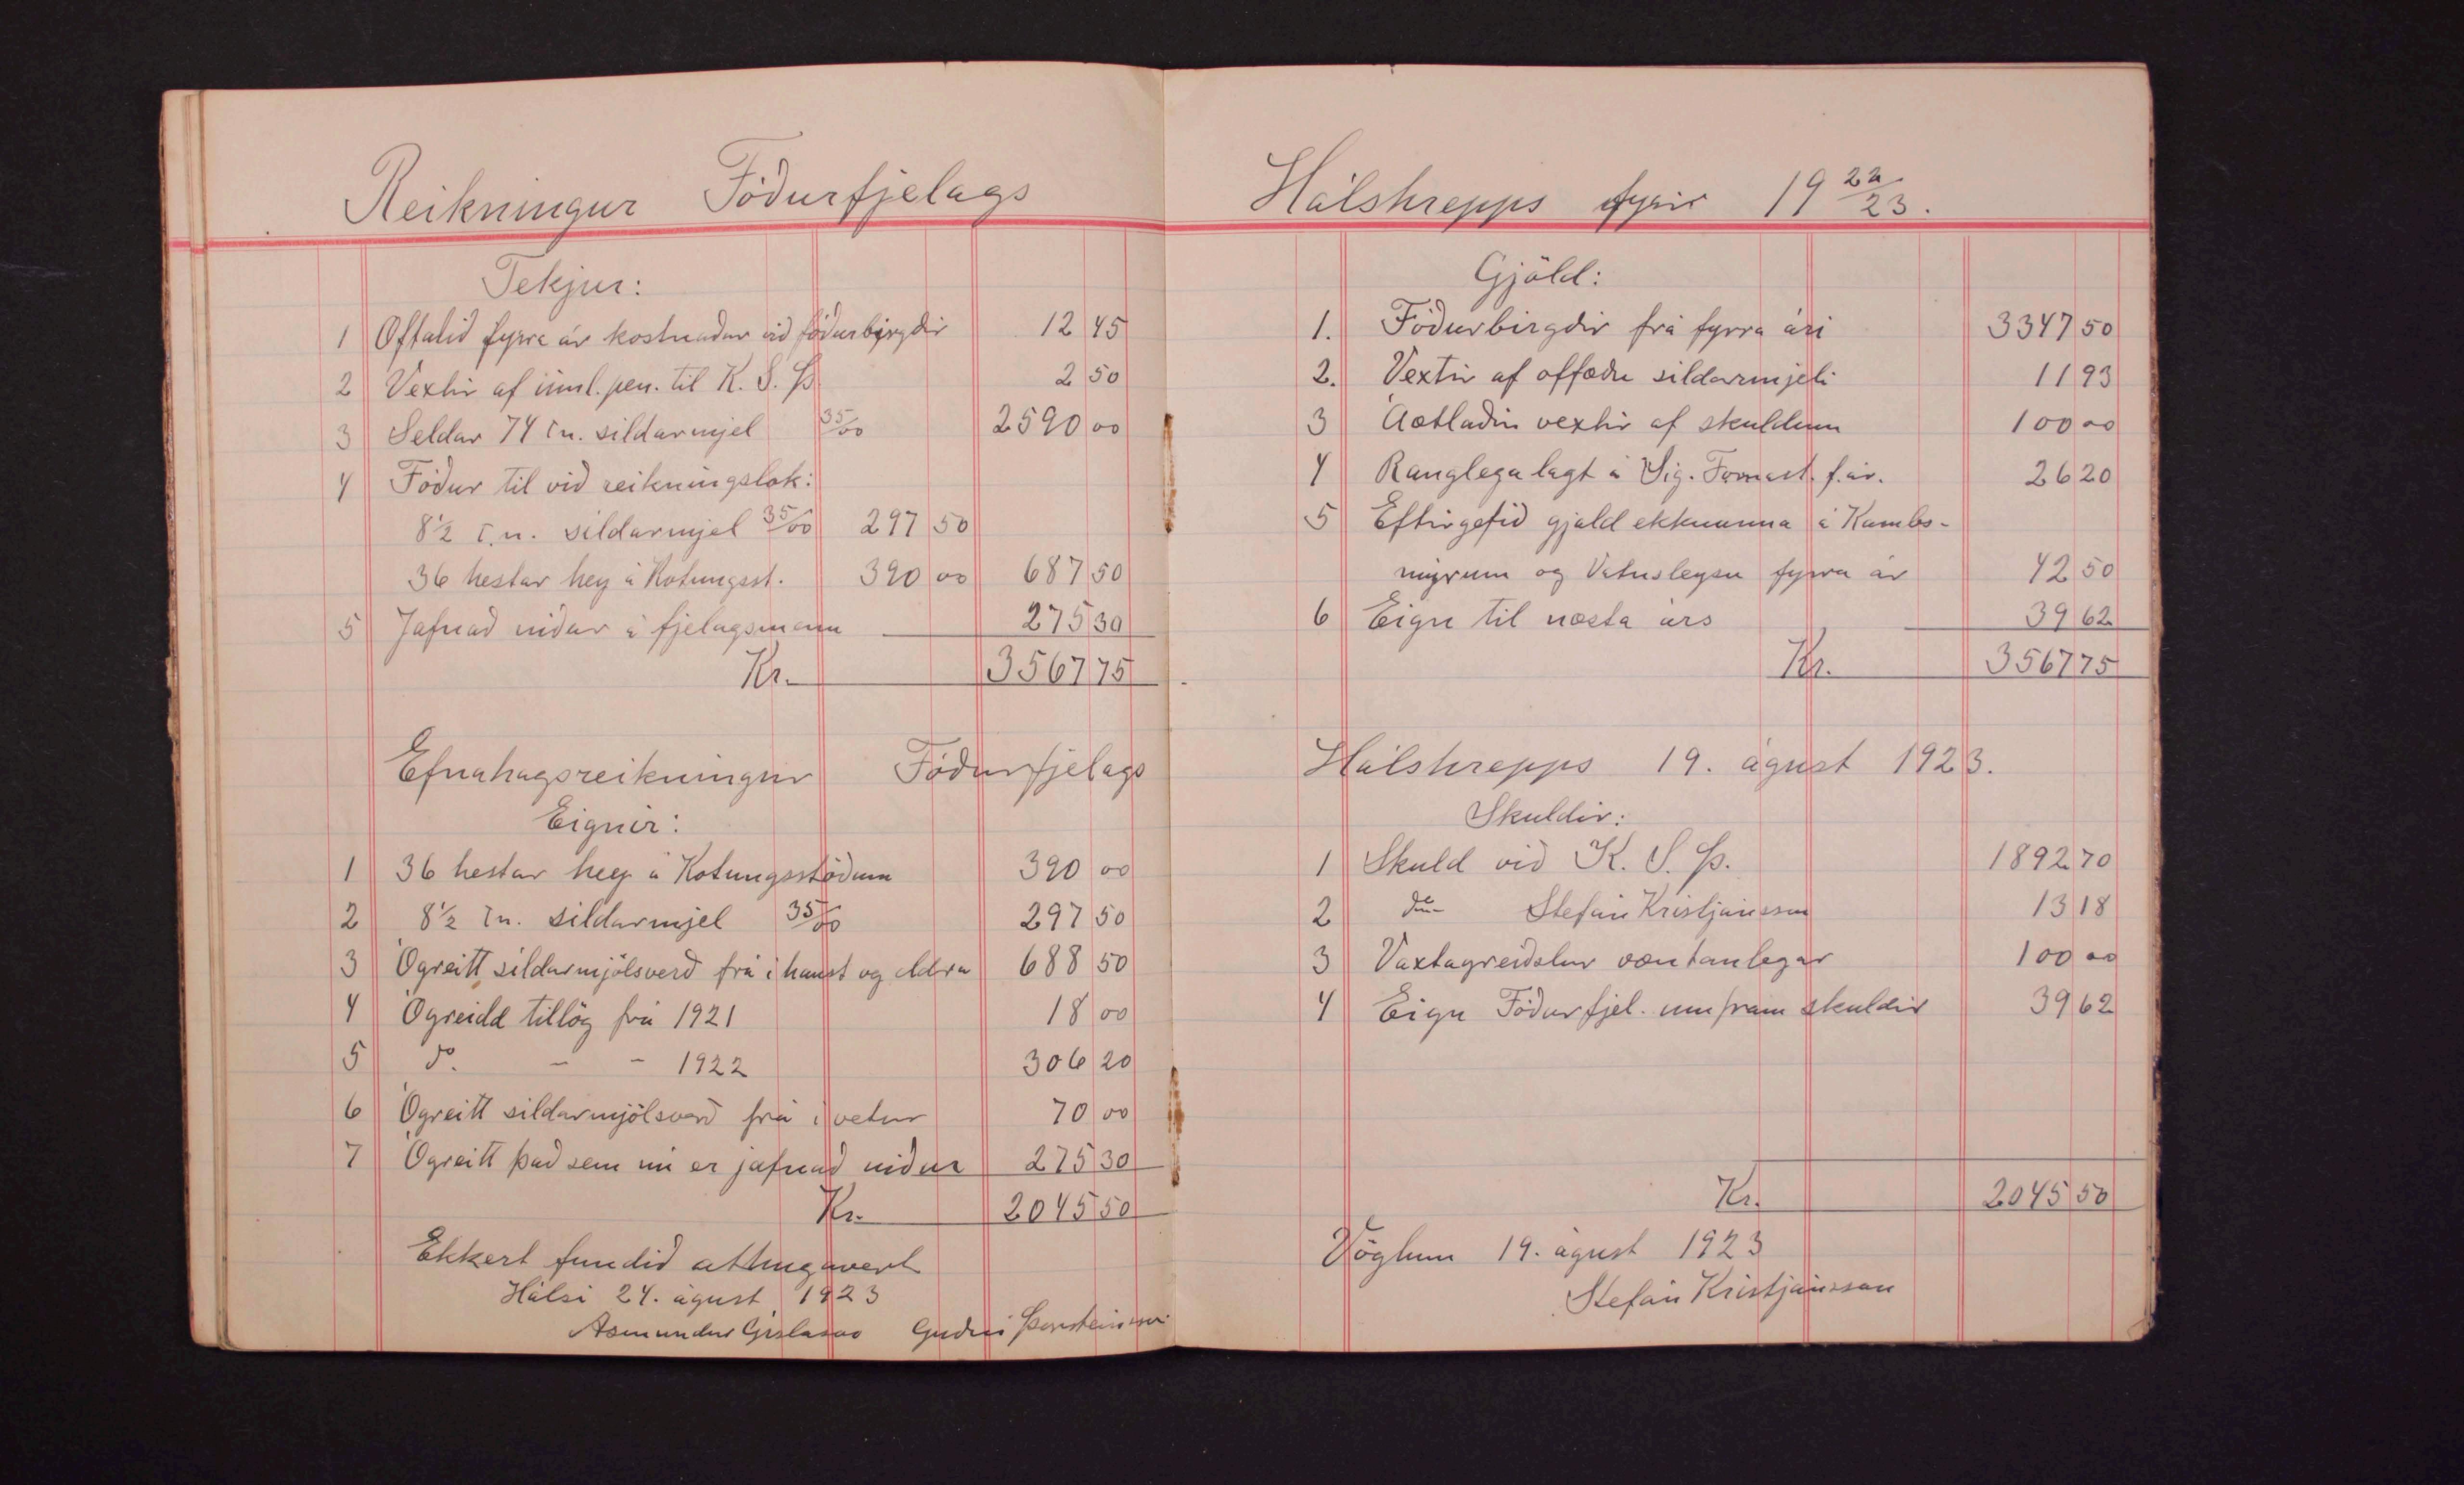 Reikningur Föðurfjelags
Tekjur:
1 Oftalið fyrra ár kostnaðar við föðurbirgðir 12 45
2 Vextir af innl. pen. til K. S. Þ 2 50
3 Seldar 74 tn. síldarmjel 35/00 2590 00
4 Föður til við reikningslok:
8 1/2 t.n. síldarmjel 35/00 297 50
36 hestar hey á Kotungsst. 390 00 687 50
5 Jafnað niður á fjelagsmenn 275 30
Kr. 3567 75
Efnahagsreikningur Föðurfjelags
Eignir:
1 36 hestar hey á Kotungsstöðum 390 00
2 8 1/2 tn. síldarmjel 35/00 297 50
3 Ógreitt síldarmjölsverð frá í haust og eldra 688 50
4 Ógreidd tillög frá 1921 18 00
5 do. - - 1922 306 20
6 Ógreitt síldarmjölsverð frá í vetur 70 00
7 Ógreitt það sem nú er jafnað niður 275 30
Kr. 2045 50
Ekkert fundið athugavert
Hálsi 24. ágúst 1923
Ásmundur Gíslason Guðni Þorsteinsson
Hálshrepps fyrir 19 22/23.
Gjöld:
1. Föðurbirgðir frá fyrra ári 3347 50
2. Vextir af offæðu síldarmjeli 11 93
3 Áætlaðir vextir af skuldum 100 00
4 Ranglega lagt á Sig. Fornast. f. ár. 26 20
5 Eftirgefið gjald ekknanna á Kambs-
mýrum og Vatnsleysu fyrra ár 42 50
6 Eign til næsta árs 39 62
Kr. 3567 75
Hálshrepps 19. ágúst 1923.
Skuldir:
1 Skuld við K. S. Þ. 1892 70
2 do - Stefán Kristjánsson 13 18
3 Vaxtagreiðslur væntanlegar 100 00
4 Eign Föðurfjel. umfram skuldir 39 62
Kr. 2045 50
Vöglum 19. ágúst 1923
Stefán Kristjánsson